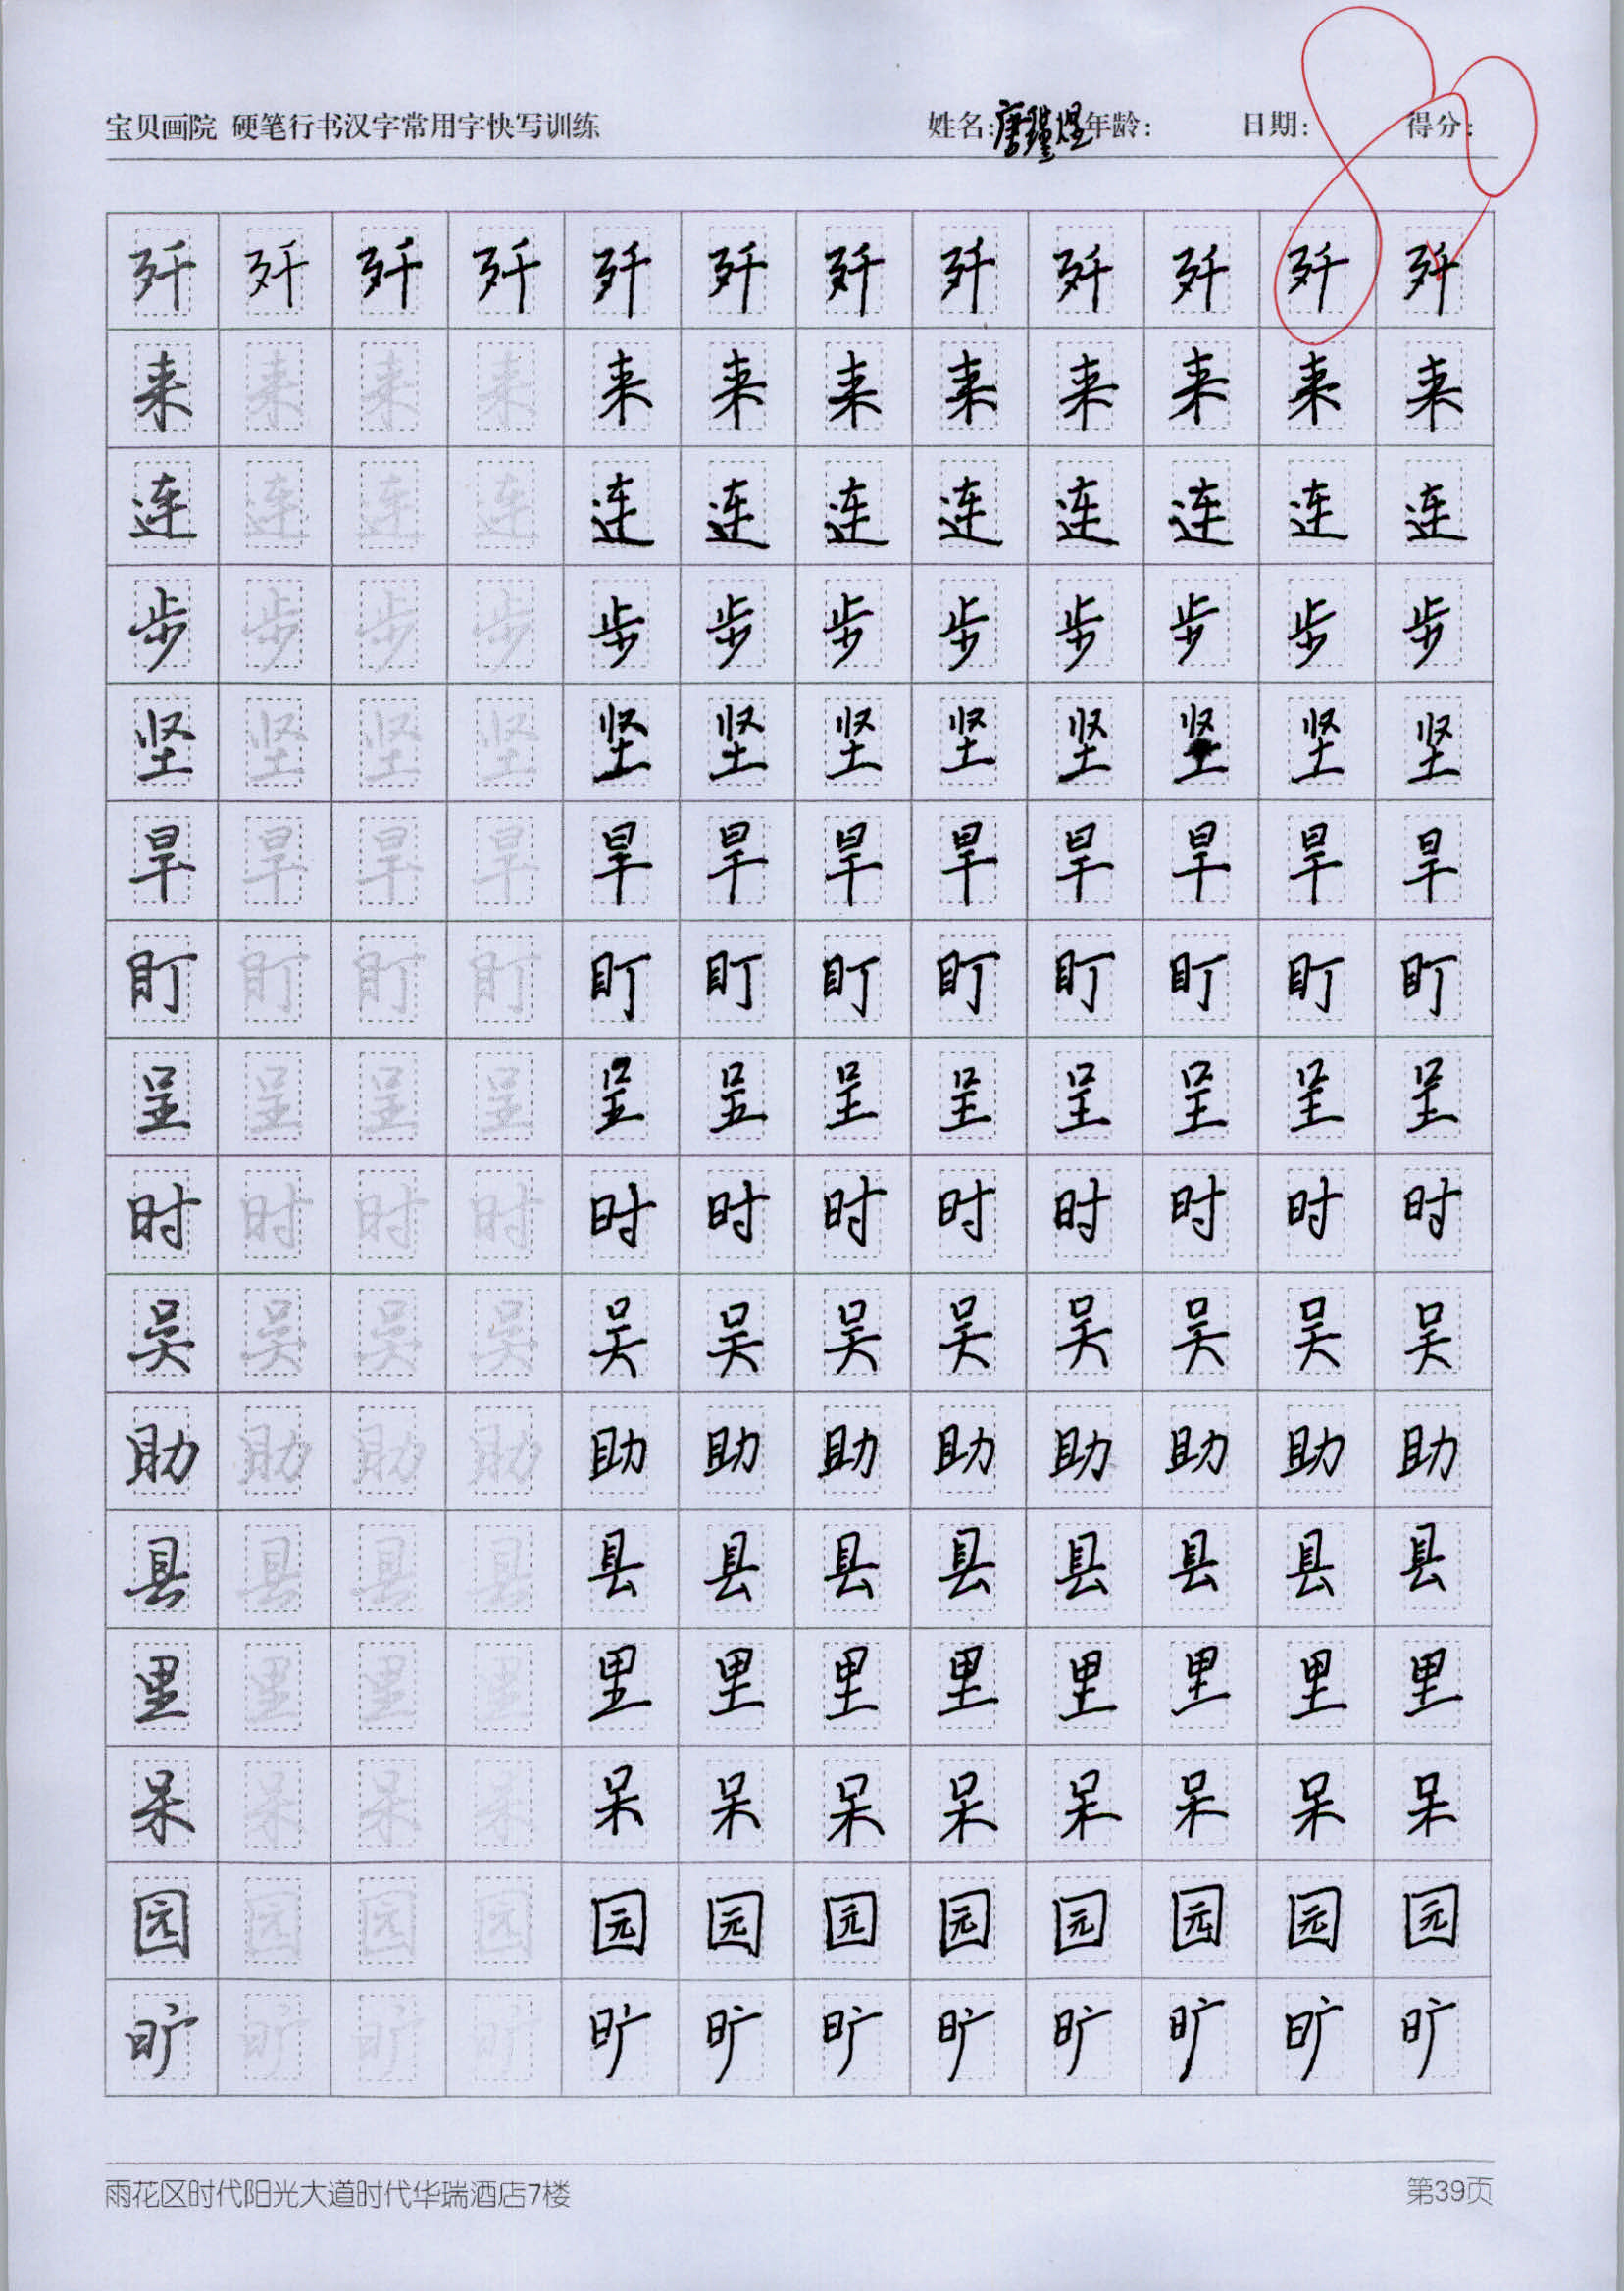 宝贝画院 硬笔行书汉字常用字快写训练 姓名:唐瑾煜 年龄: 日期: 得分: 80
歼 歼 歼 歼 歼 歼 歼 歼 歼 歼 歼 歼
来 来 来 来 来 来 来 来 来 来 来 来
连 连 连 连 连 连 连 连 连 连 连 连
步 步 步 步 步 步 步 步 步 步 步 步
坚 坚 坚 坚 坚 坚 坚 坚 坚 坚 坚 坚
旱 旱 旱 旱 旱 旱 旱 旱 旱 旱 旱 旱
盯 盯 盯 盯 盯 盯 盯 盯 盯 盯 盯 盯
呈 呈 呈 呈 呈 呈 呈 呈 呈 呈 呈 呈
时 时 时 时 时 时 时 时 时 时 时 时
吴 吴 吴 吴 吴 吴 吴 吴 吴 吴 吴 吴
助 助 助 助 助 助 助 助 助 助 助 助
县 县 县 县 县 县 县 县 县 县 县 县
里 里 里 里 里 里 里 里 里 里 里 里
呆 呆 呆 呆 呆 呆 呆 呆 呆 呆 呆 呆
园 园 园 园 园 园 园 园 园 园 园 园
旷 旷 旷 旷 旷 旷 旷 旷 旷 旷 旷 旷
雨花区时代阳光大道时代华瑞酒店7楼 第39页